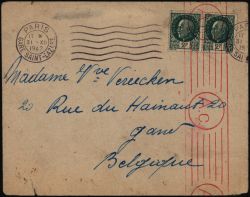 PARIS
GARE SAINT-LAZARE
Madame Vve Vereecken
20 Rue du Hainaut 20
gand
Belgique